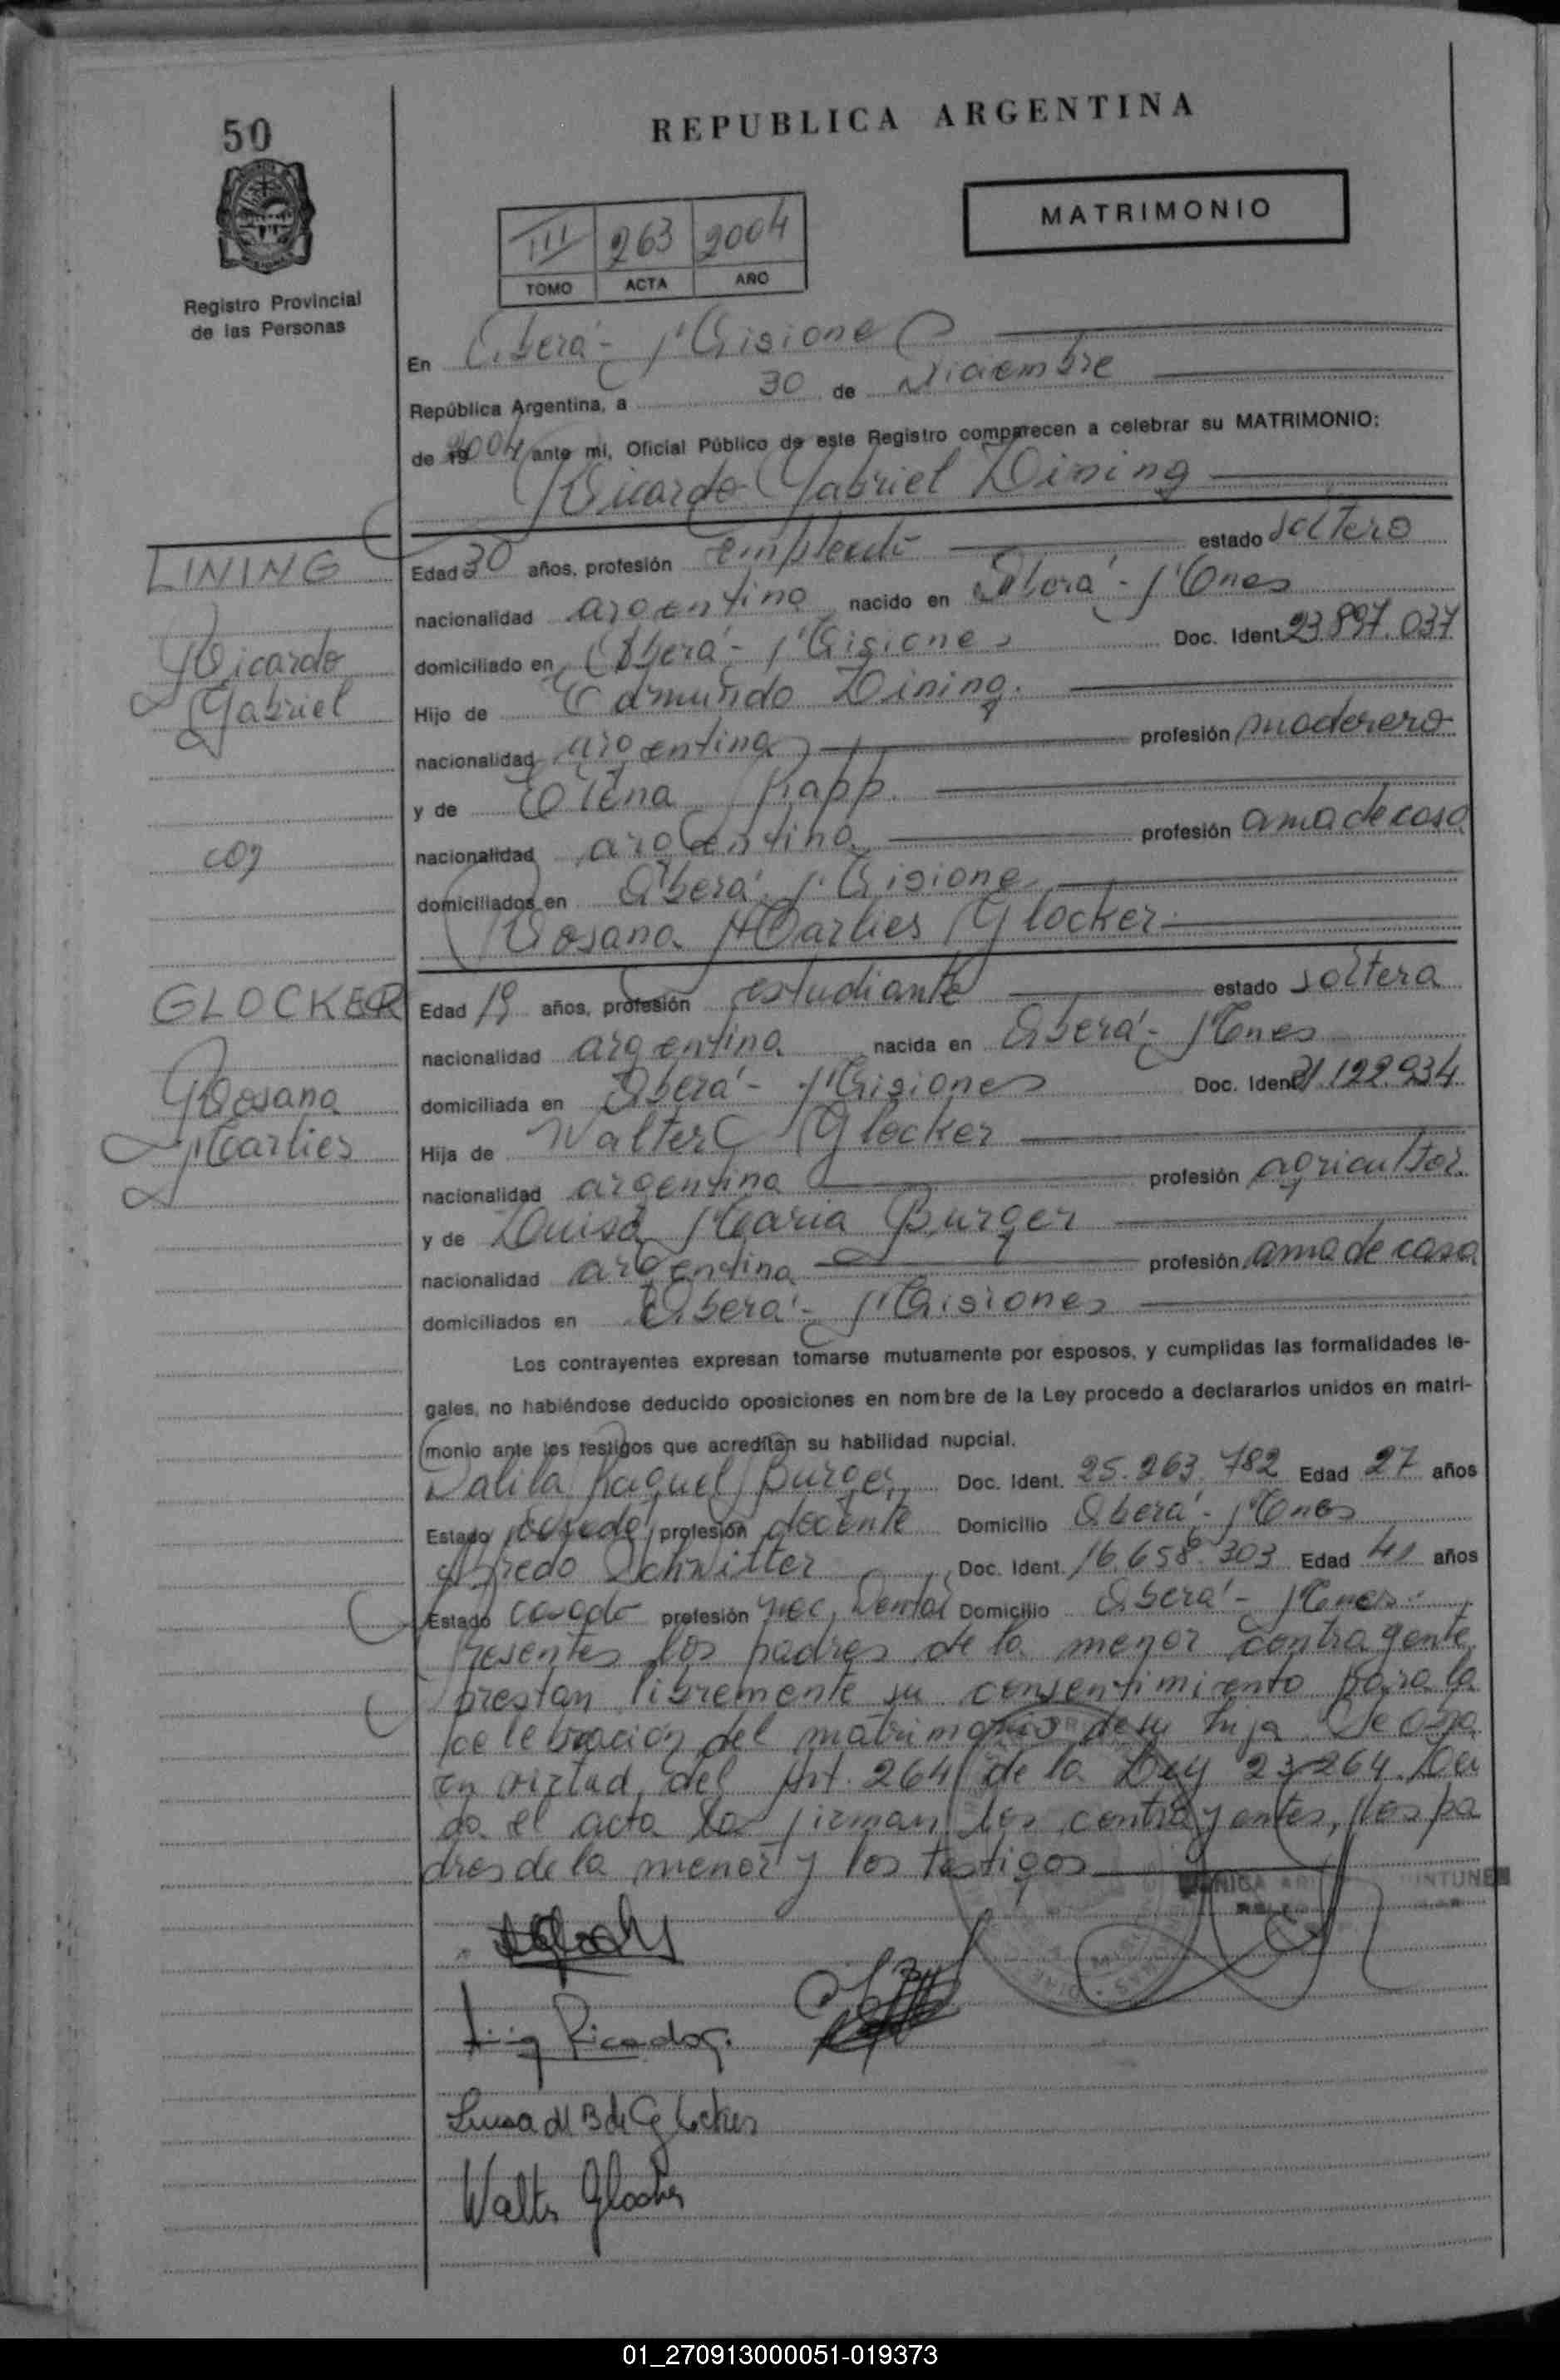 50
REPUBLICA ARGENTINA
MATRIMONIO
III 263 2004
TOMO ACTA AÑO
Registro Provincial
de las Personas
En Oberá - Misiones
República Argentina, a 30 de Diciembre
de 2004 ante mi, Oficial Público de este Registro comparecen a celebrar su MATRIMONIO:
Ricardo Gabriel Lining
LINING
Ricardo
Gabriel
con
GLOCKER
Rosana
Marlies
Edad 30 años, profesión empleado estado soltero
nacionalidad argentino nacido en Oberá - Mnes
domiciliado en Oberá - Misiones Doc. Ident. 23.897.037
Hijo de Edmundo Lining.
nacionalidad argentina profesión maderero
y de Elena Rapp.
nacionalidad argentina profesión ama de casa
domiciliados en Oberá Misiones
Rosana Marlies Glocker
Edad 19 años, profesión estudiante estado soltera
nacionalidad argentina nacida en Oberá - Mnes
domiciliada en Oberá - Misiones Doc. Ident. 31.122.934
Hija de Walter Glocker
nacionalidad argentina profesión agricultor
y de Luisa Maria Burger
nacionalidad argentina profesión ama de casa
domiciliados en Oberá - Misiones
Los contrayentes expresan tomarse mutuamente por esposos, y cumplidas las formalidades le-
gales, no habiéndose deducido oposiciones en nombre de la Ley procedo a declararlos unidos en matri-
monio ante los testigos que acreditan su habilidad nupcial.
Dalila Raquel Burger Doc. Ident. 25.263.782 Edad 27 años
Estado casada profesión docente Domicilio Oberá - Mnes
Alfredo Schwitter Doc. Ident. 16.658.303 Edad 41 años
Estado casado profesión Mec. Dental Domicilio Oberá - Mnes.
Presentes los padres de la menor contragente
prestan libremente su consentimiento para la
celebración del matrimonio de su hija Se obra
en virtud del Art. 264 de la Ley 23264. Leí
da el acta la firman los contrayentes, los pa
dres de la menor y los testigos
Lining Ricardo G.
Luisa M B de Glocker
Walter Glocker
01_270913000051-019373